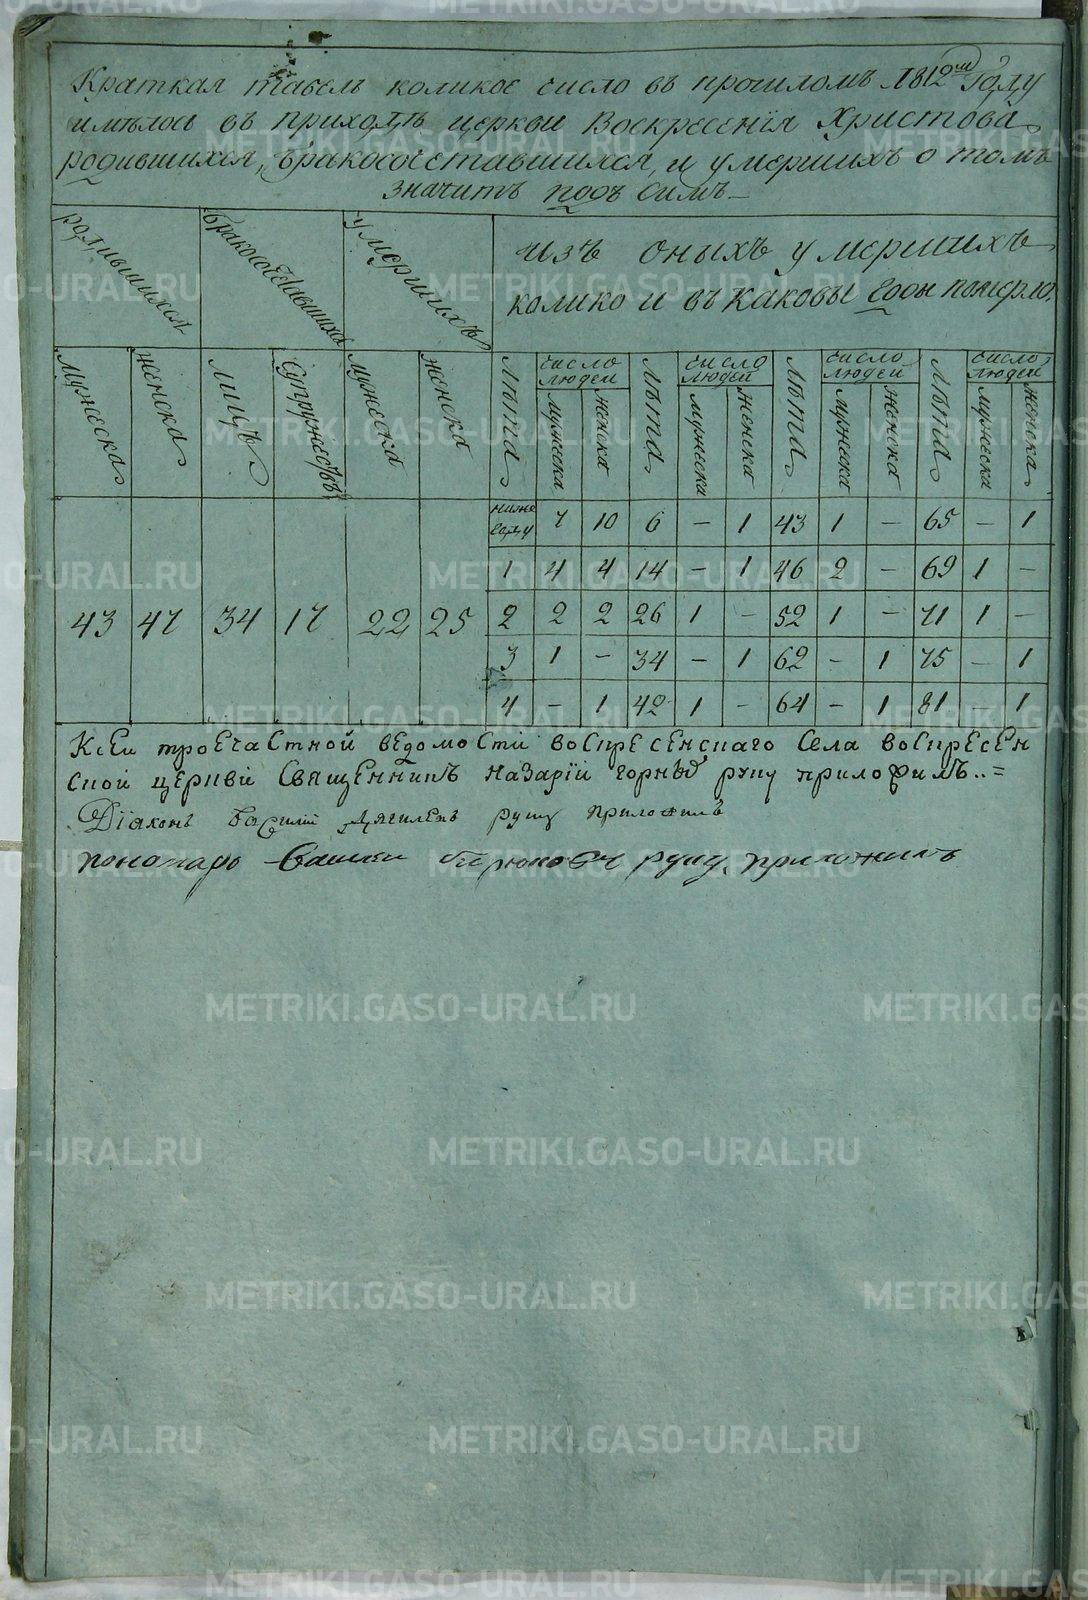 Краткая табель коликое число въ прошломъ 1812ом Году
имѣлось въ приходѣ церкви Воскресенія Христова
родившихся, бракосочетавшихся, и умершихъ о томъ
значитъ подъ симъ
родившихся бракосочетавшихся умершихъ Изъ оныхъ умершихъ
колико и въ каковы годы померло
мужеска женска лицъ супружествъ мужеска женска Лѣта число людей мужеска женска Лѣта число людей мужеска женска Лѣта число людей мужеска женска Лѣта число людей мужеска женска
ниже году 7 10 6 – 1 43 1 – 65 – 1
1 4 4 14 – 1 46 2 – 69 1 –
43 47 34 17 22 25 2 2 2 26 1 – 52 1 – 71 1 –
3 1 – 34 – 1 62 – 1 75 – 1
4 – 1 42 1 – 64 – 1 81 – 1
Ксеи троечастной ведомости воскресенскаго села воскресен
ской церкви священникъ Назарій горныхъ руку приложилъ..=
Діаконъ Василій руку приложилъ
пономарь руку приложилъ
METRIKI.GASO-URAL.RU